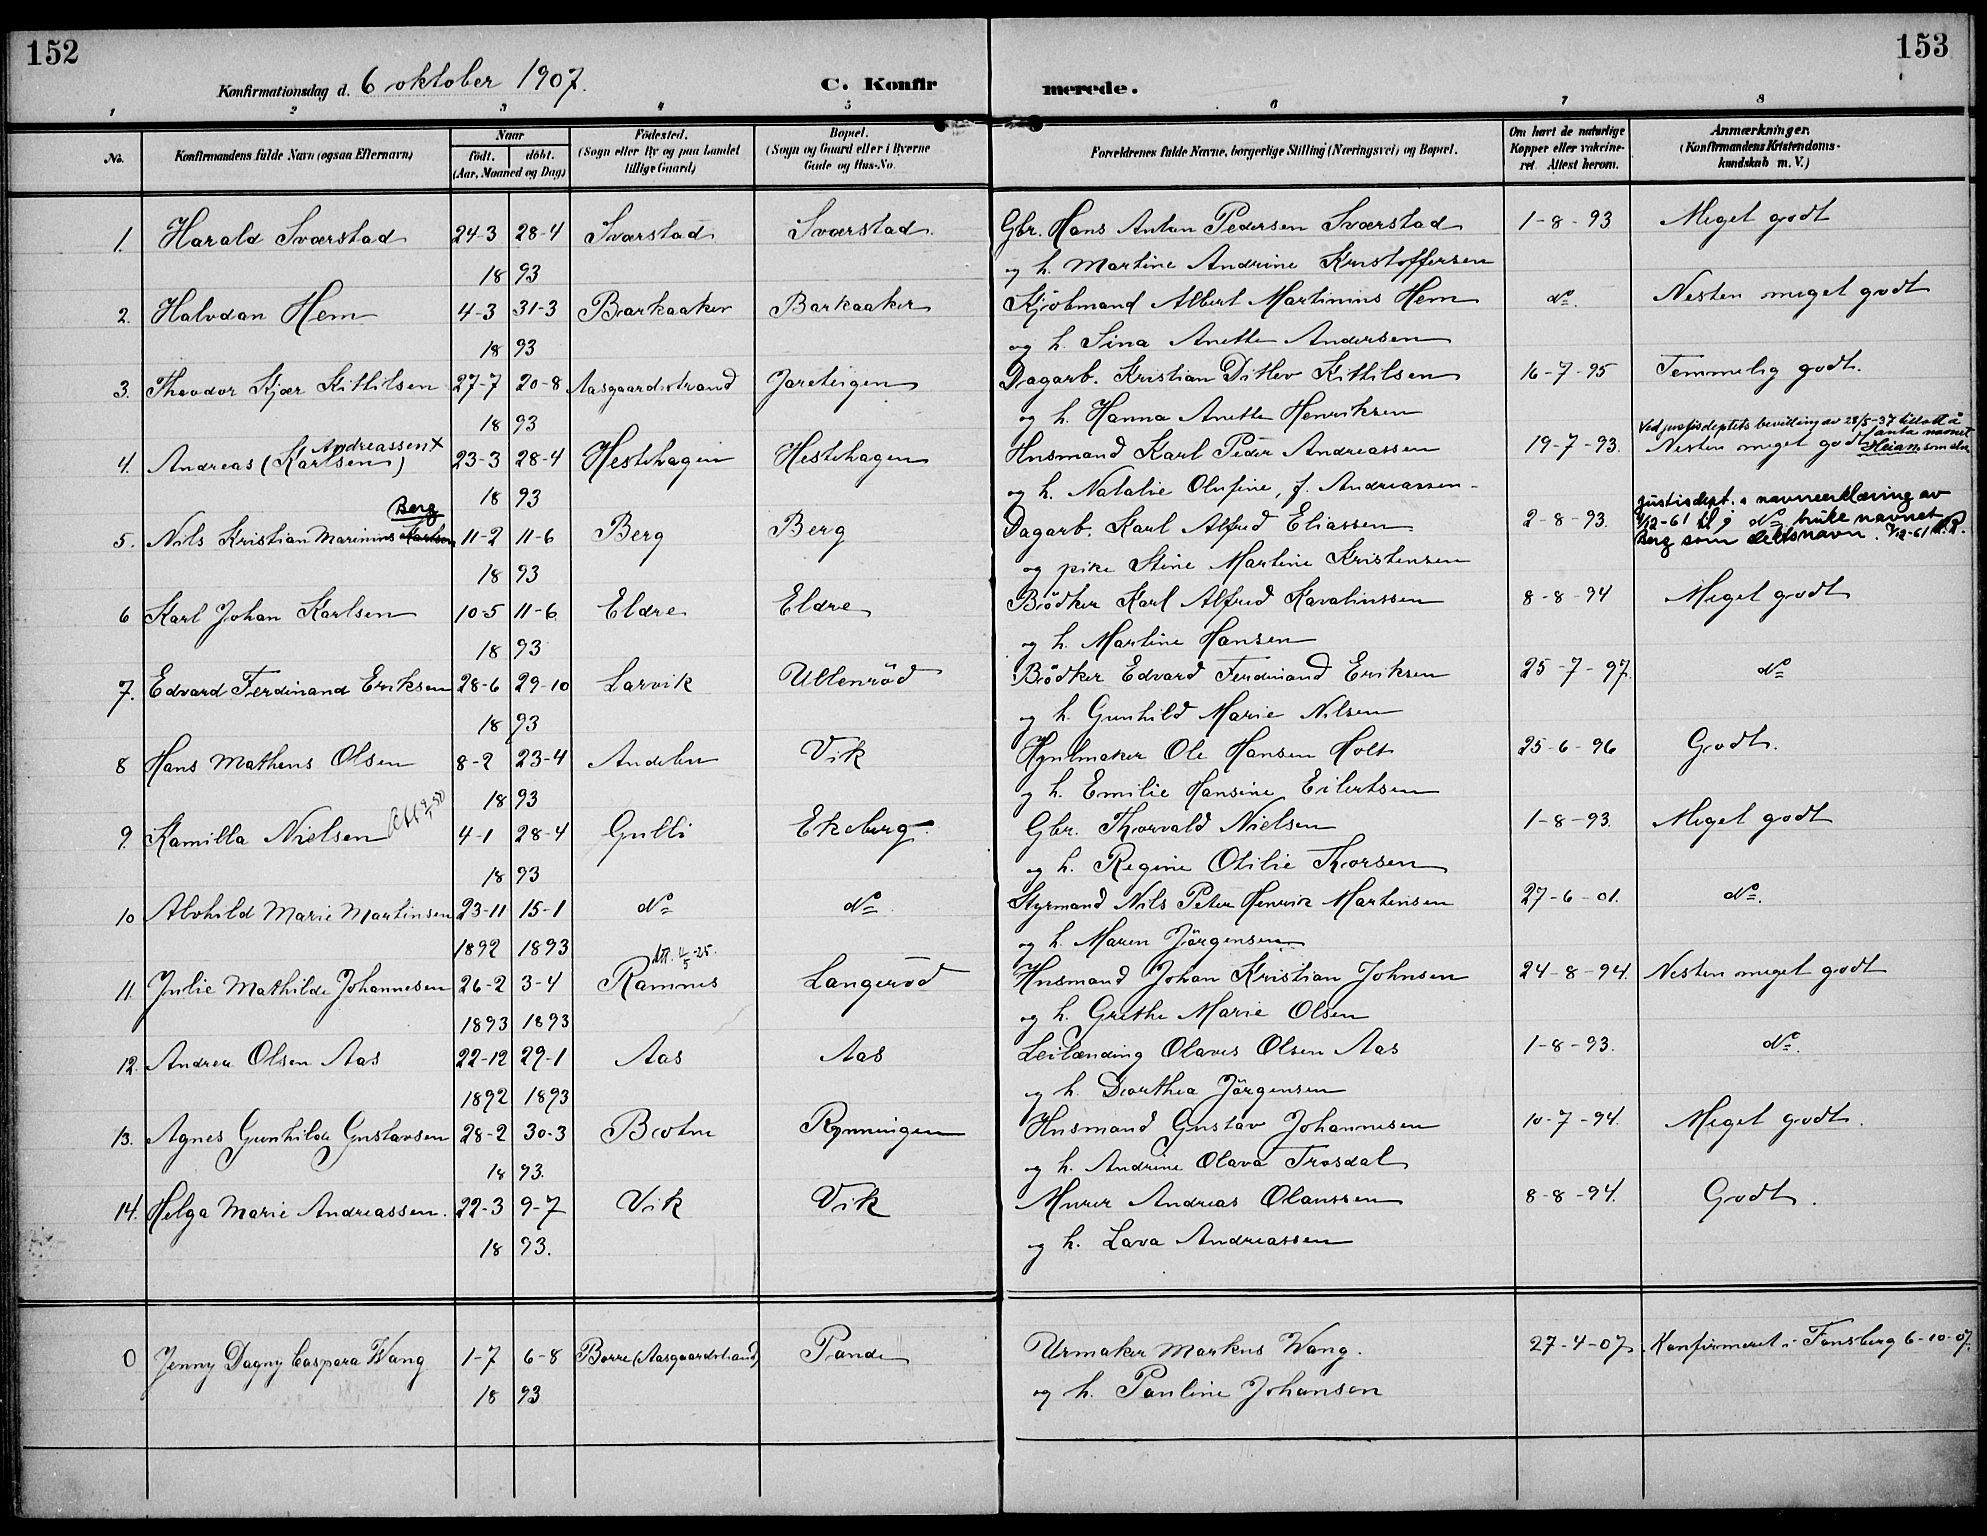 152
153
Konfirmationsdag d. 6 oktober 1907.
C. Konfir merede.
1 2 3 4 5 6 7 8
No.
Konfirmandens fulde Navn (ogsaa Efternavn)
Naar
født. døbt.
(Aar, Maaned og Dag)
Fødested.
(Sogn eller By og paa Landet
tillige Gaard)
Bopæl.
(Sogn og Gaard eller i Byerne
Gade og Hus-No.
Forældrenes fulde Navne, borgerlige Stilling (Næringsvei) og Bopæl.
Om havt de naturlige
Kopper eller vakcine-
ret. Attest herom.
Anmærkninger.
(Konfirmandens Kristendoms-
kundskab m. V.)
1. Harald Sværstad 24-3 28-4 Sværstad Sværstad. Gbr. Hans Anton Pedersen Sværstad 1-8-93 Meget godt
18 93 og h. Martine Andrine Kristoffersen
2. Halvdan Hem 4-3 31-3 Barkaaker Barkaaker Kjøbmand Albert Martinius Hem do. Nesten meget godt
18 93 og h. Sina Anette Andersen
3. Theodor Kjær Kittilsen 27-7 20-8 Aasgaardstrand Jareteigen Dagarb. Kristian Ditlev Kittilsen 16-7-95 Temmelig godt.
18 93 og h. Hanna Anette Henriksen
Andreassen x
Ved justisdeptets bevilling av 28/5-37 tillatt å
anta navnet
4. Andreas (Karlsen) 23-3 28-4 Hestehagen Hestehagen Husmand Karl Peder Andreassen 19-7-93. Nesten meget godt Heian som
18 93 og h. Natalie Olufine, f. Andreassen
Berg
Justisdept.s navneerklæring av
5. Nils Kristian Marinius Karlsen 11-2 11-6 Berg Berg Dagarb. Karl Alfred Eliassen 2-8-93. do. bruke navnet
Berg som
18 93 og pike Stine Martine Kristensen
6 Karl Johan Karlsen 10-5 11-6 Eldre Eldre Bødker Karl Alfred Kavalinssen 8-8-94 Meget godt
18 93 og h. Martine Hansen
7. Edvard Ferdinand Eriksen 28-6 29-10 Larvik Ullenrød Bødker Edvard Ferdinand Eriksen 25-7-97. do
18 93 og h. Gunhild Marie Nilsen
8 Hans Matheus Olsen 8-2 23-4 Andebu Vik Hjulmaker Ole Hansen Holt 25-6-96 Godt.
18 93 og h. Emilie Hansine Eilertsen
9. Kamilla Nielsen 4-1 28-4 Gulli Ekeberg. Gbr. Thorvald Nielsen 1-8-93. Meget godt
18 93 og h. Regine Otilie Thorsen
10 Alvhild Marie Martinsen 23-11 15-1 do do Styrmand Nils Peter Henrik Martinsen 27-6-01. do.
1892 1893 og h. Maren Jørgensen
att. 4/5-25.
11. Julie Mathilde Johannesen 26-2 3-4 Ramnes Langerød Husmand Johan Kristian Johnsen 24-8-94. Nesten meget godt
1893 1893 og h. Grethe Marie Olsen
12. Andrea Olsen Aas 22-12 29-1 Aas Aas Leilænding Olaves Olsen Aas 1-8-93. do.
1892 1893 og h. Dorthea Jørgensen
13. Agnes Gunhilde Gustavsen 28-2 30-3 Botne Rønningen Husmand Gustav Johannesen 10-7-94. Meget godt.
18 93. og h. Andrine Olava Trosdal
14. Helga Marie Andreassen. 22-3 9-7 Vik Vik Murer Andreas Olaussen 8-8-94. Godt.
18 93. og h. Lava Andreassen
0 Jenny Dagny Caspara Wang 1-7 6-8 Borre (Aasgaardstrand) Rande Urmaker Markus Wang. 27-4-07. Konfirmeret i Tønsberg 6-10-07.
18 93 og h. Pauline Johansen